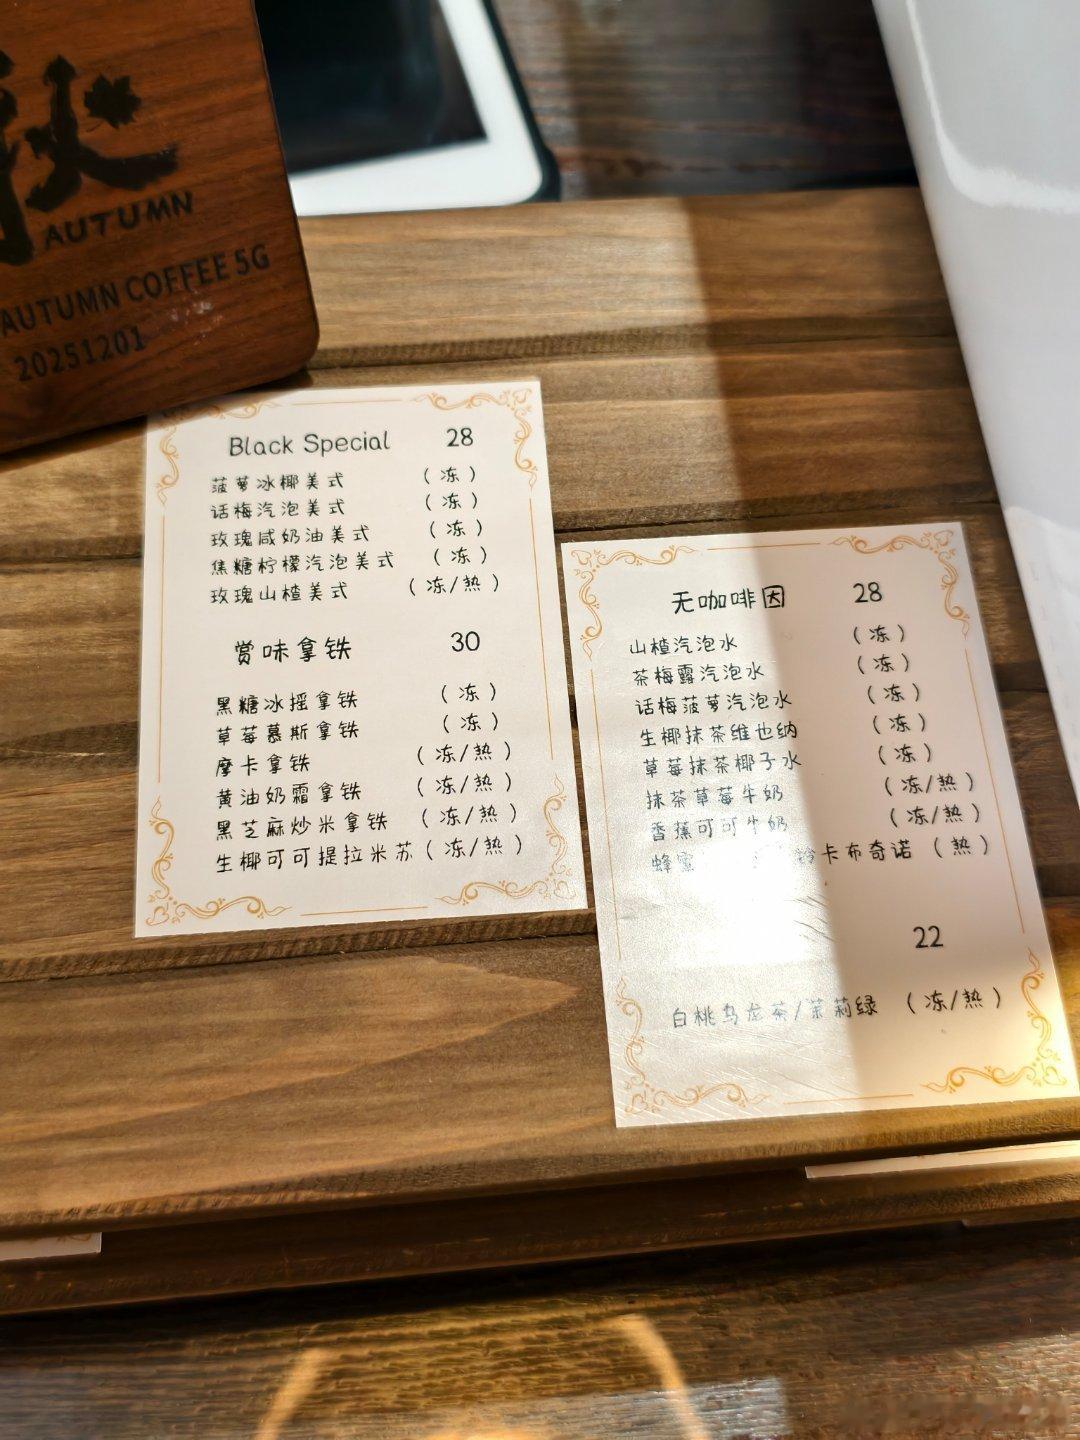 秋
AUTUMN
AUTUMN COFFEE 5G
20251201
Black Special 28
菠萝冰椰美式 (冻)
话梅汽泡美式 (冻)
玫瑰咸奶油美式 (冻)
焦糖柠檬汽泡美式 (冻)
玫瑰山楂美式 (冻/热)
赏味拿铁 30
黑糖冰摇拿铁 (冻)
草莓慕斯拿铁 (冻)
摩卡拿铁 (冻/热)
黄油奶霜拿铁 (冻/热)
黑芝麻炒米拿铁 (冻/热)
生椰可可提拉米苏 (冻/热)
无咖啡因 28
山楂汽泡水 (冻)
茶梅露汽泡水 (冻)
话梅菠萝汽泡水 (冻)
生椰抹茶维也纳 (冻)
草莓抹茶椰子水 (冻)
抹茶草莓牛奶 (冻/热)
香蕉可可牛奶 (冻/热)
蜂蜜 卡布奇诺 (热)
22
白桃乌龙茶/茉莉绿 (冻/热)